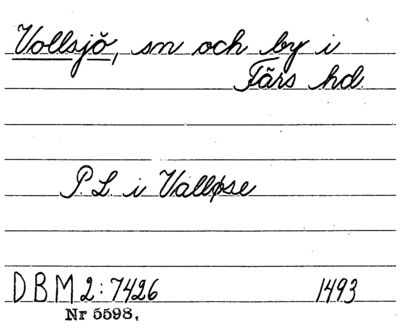 Vollsjö, sn och by i
Färs hd.
P. L. i Valløse
DBM 2:7426 1493
Nr 5598.